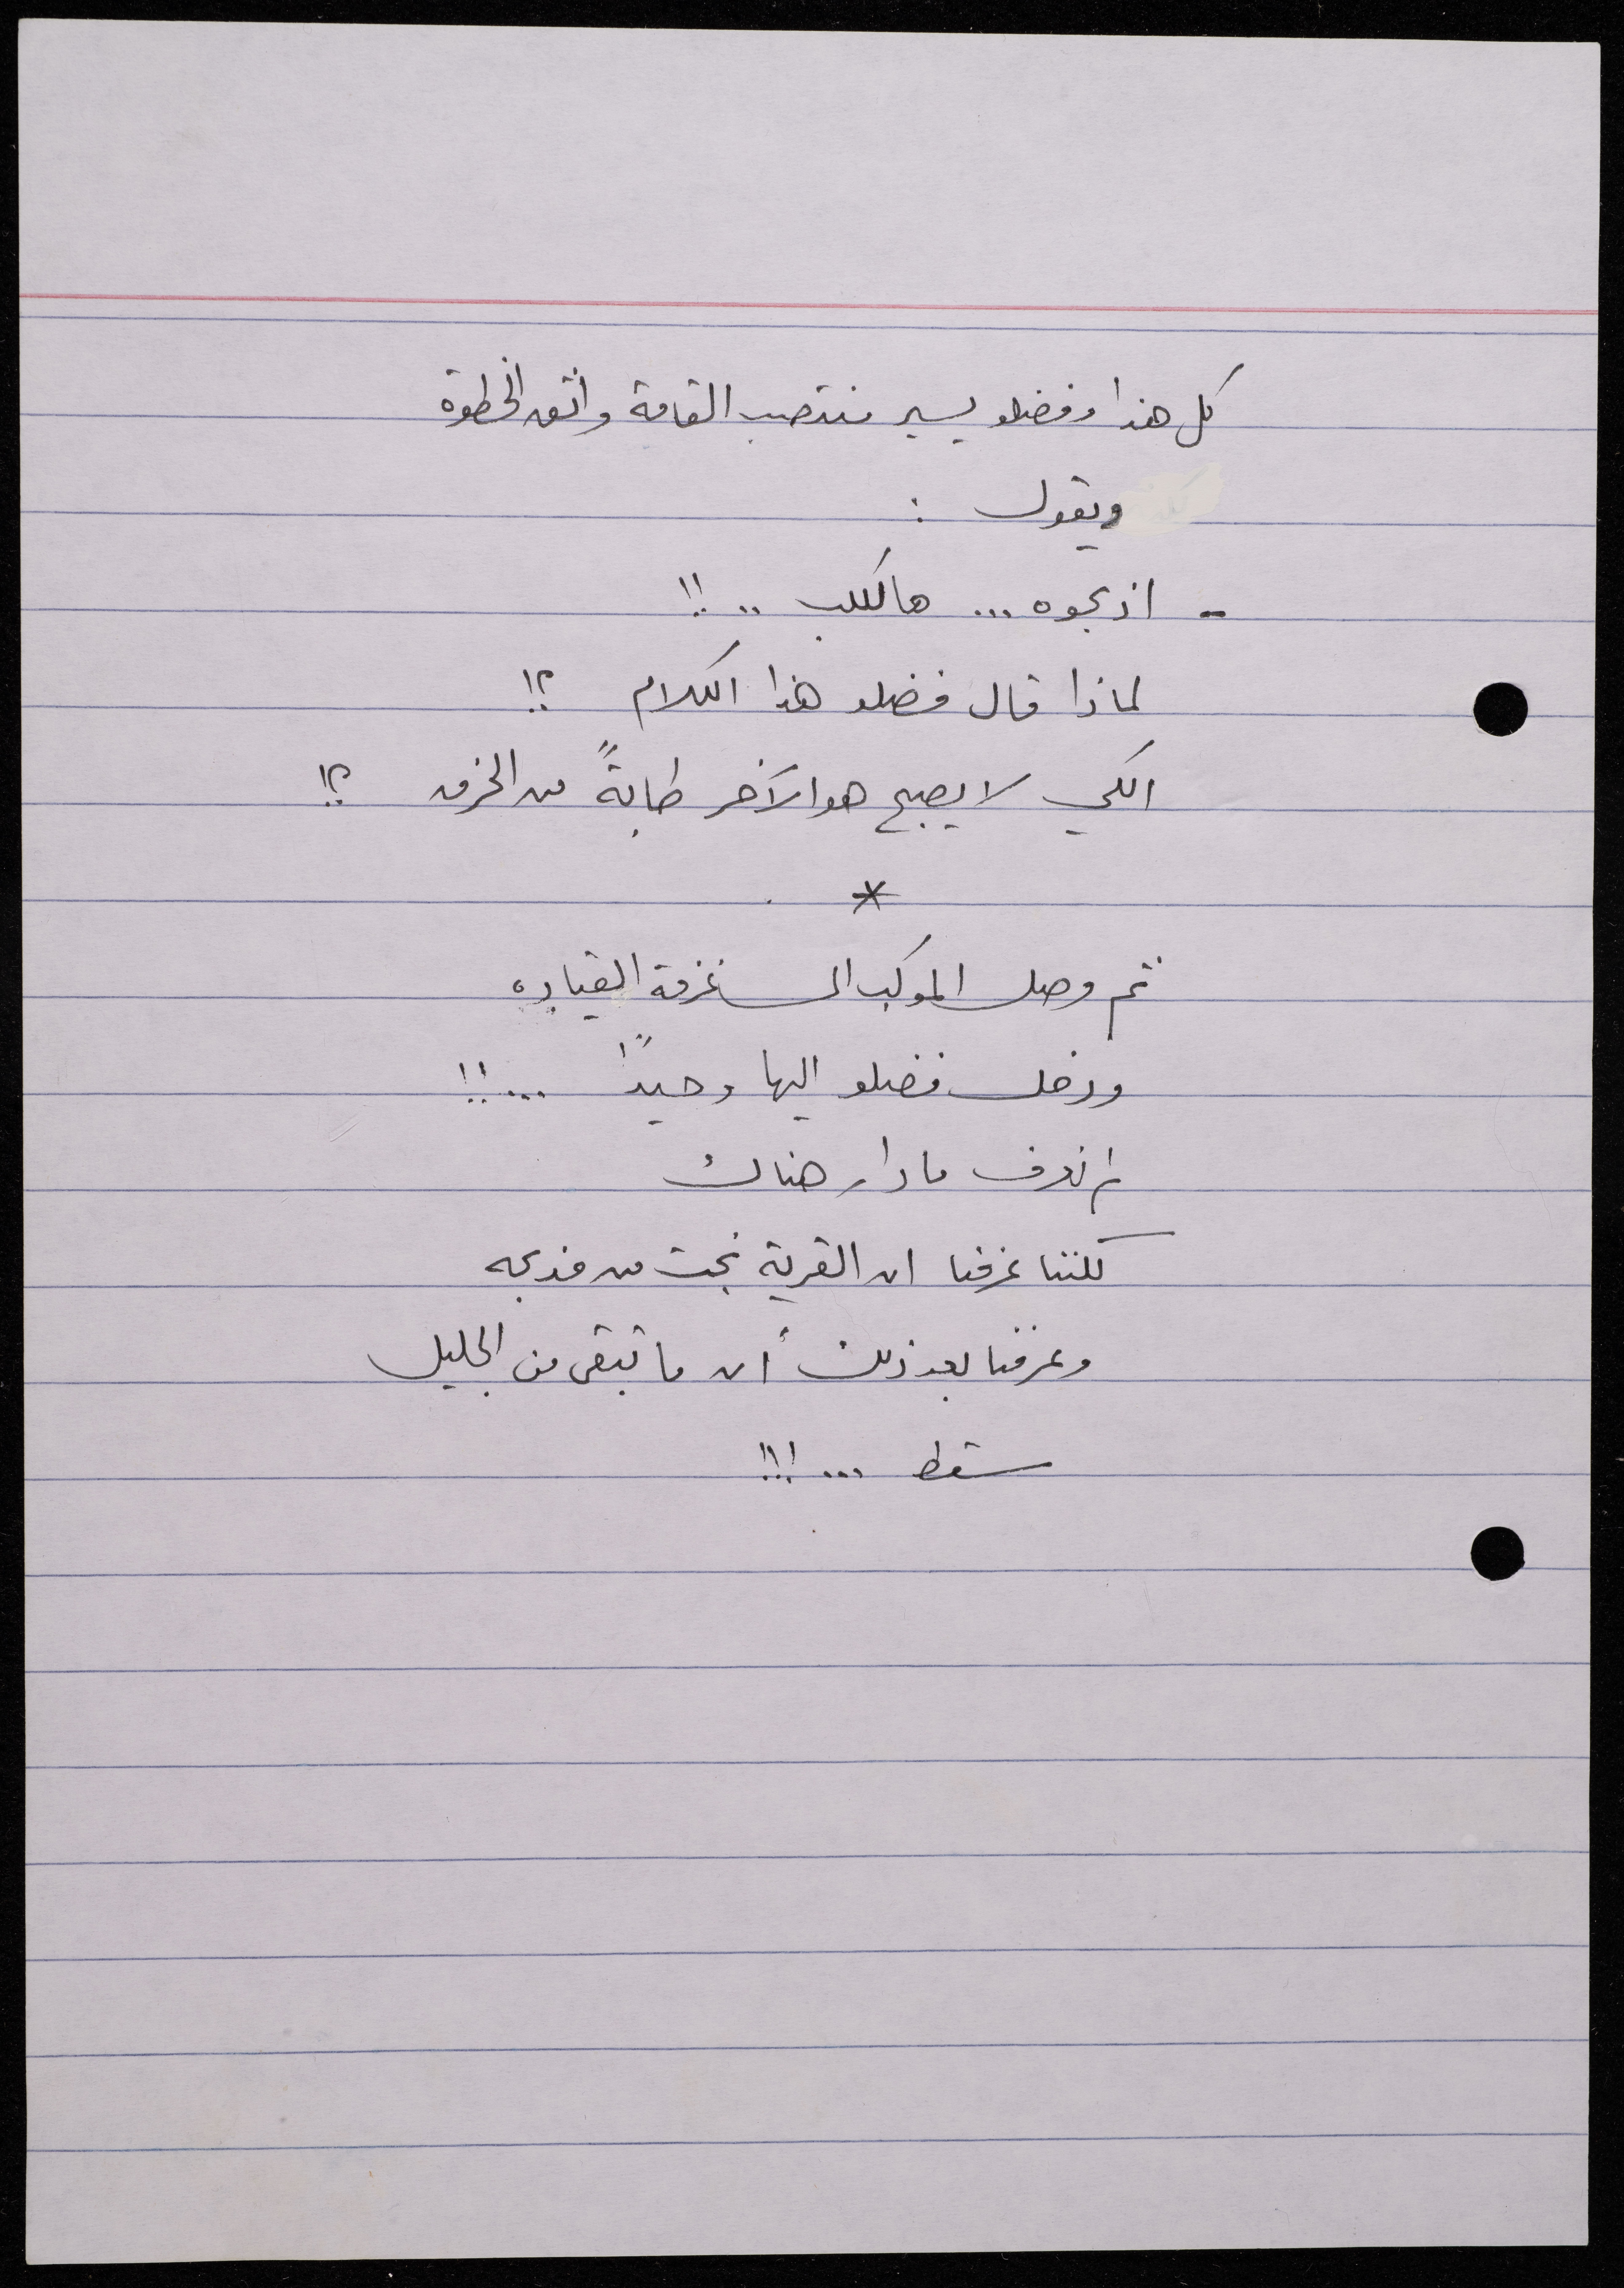 كل هذا وفضلو يسير منتصب القامة واثق الخطوة
ويقول :
- اذبحوه ... هالكلب .. !!
لماذا قال فضلو هذا الكلام ؟!
الكي لا يصبح هو الآخر طابةً من الخرق ؟!
*
ثم وصل الموكب الى غرفة القياده
ودخل فضلو اليها وحيداً ... !!
لم نعرف ما دار هناك
لكننا عرفنا ان القرية نجت من مذبحه
وعرفنا بعد ذلك أن ما تبقى من الجليل
سقط ... !!!